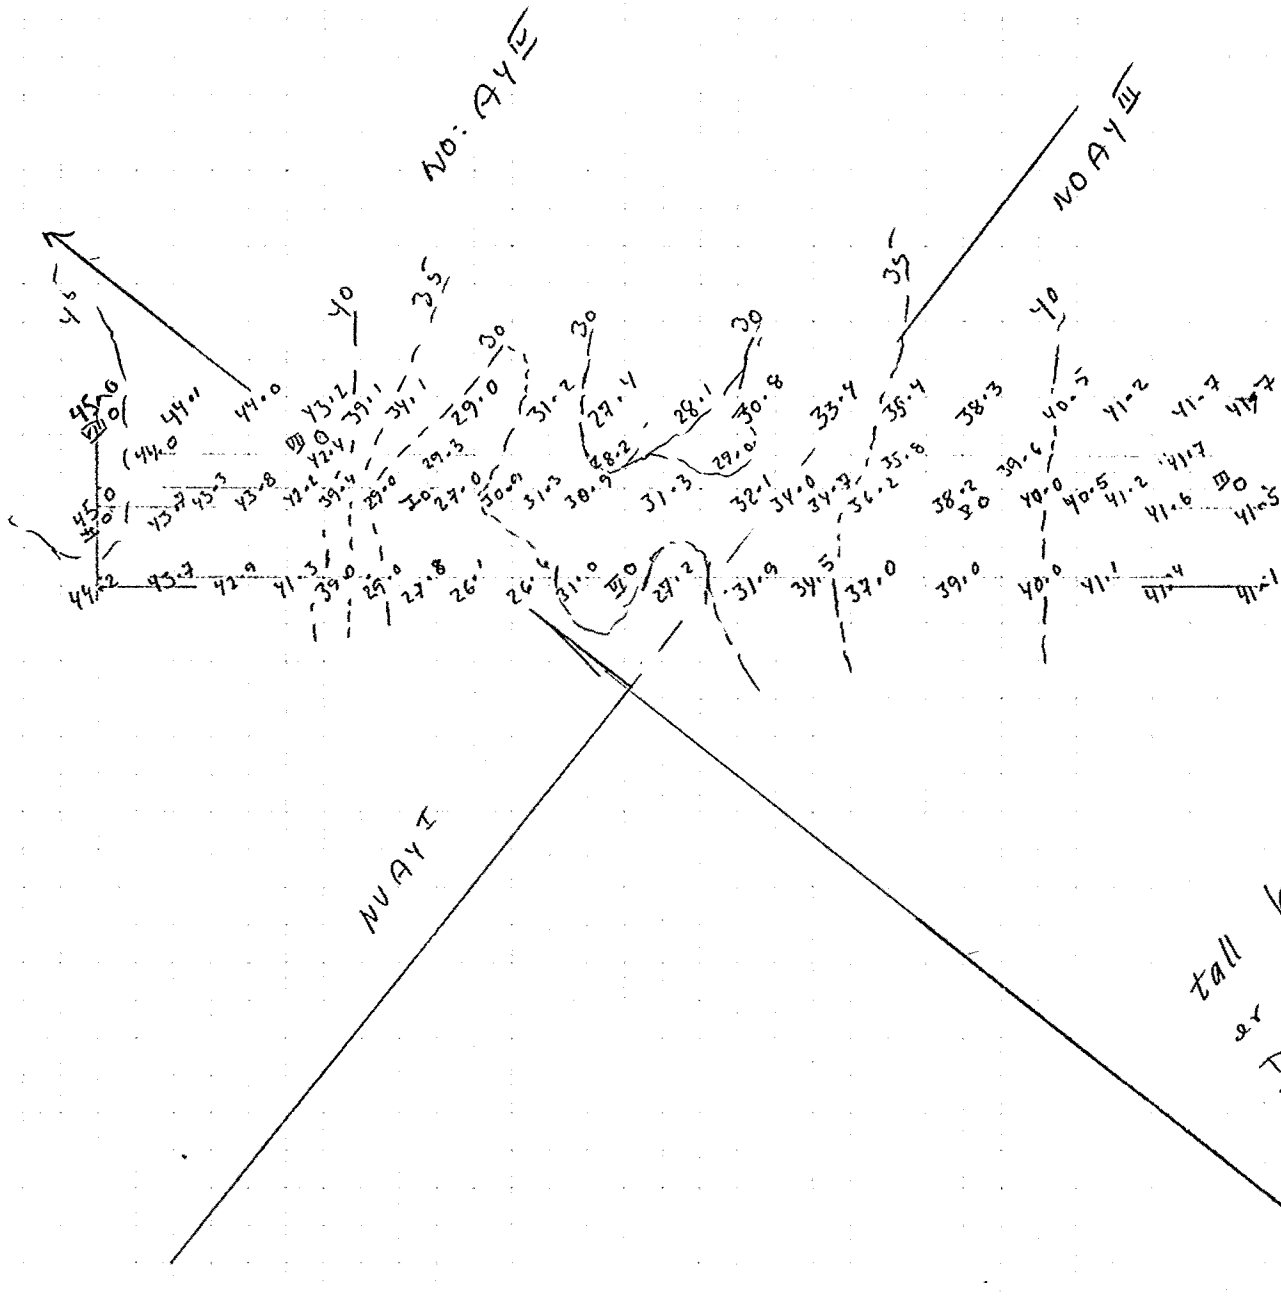 NO: AY IV
NO AY III
45 40 35 30 30 30 35 40
45.0 44.1 44.0 43.2 39.1 34.1 29.0 31.2 27.4 28.1 30.8 33.4 35.4 38.3 40.5 41.2 41.7 41.7
44.0 42.4 29.3 28.2 29.0 35.8 39.6 41.7
45.0 43.7 43.3 43.8 42.2 39.4 29.0 I0 27.0 30.9 31.3 30.9 31.3 32.1 34.0 34.7 36.2 38.2 40.0 40.5 41.2 41.6 41.5
44.2 43.7 42.9 41.3 39.0 29.0 27.8 26.1 26.6 31.0 27.2 31.9 34.5 37.0 39.0 40.0 41.1 41.4 41.1
NV AY I
tall
er